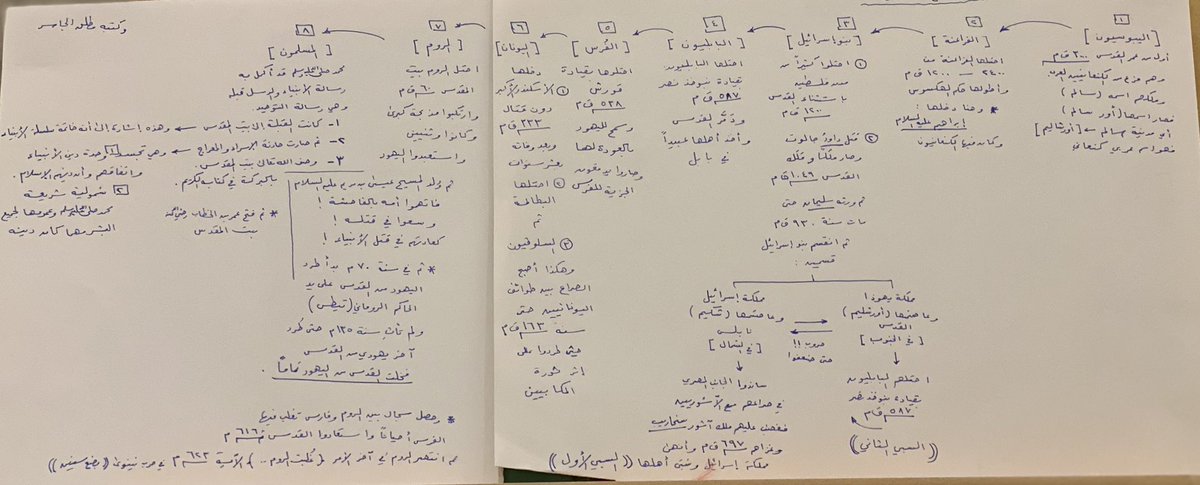 ١
[اليبوسيون]
أول من عمر القدس ٣٠٠٠ ق م
وهم فرع من الكنعانيين العرب
وملكهم اسمه (سالم)
فصار اسمها (أور سالم)
أي مدينة سالم ← [أورشاليم]
فهو اسم عربي كنعاني
٢
[الفراعنة]
احتلها الفراعنة من
٢٤٠٠ — ١٢٠٠ ق م
* وهنا دخلها:
إبراهيم عليه السلام
وكان فيها الكنعانيون
٣
[بنو إسرائيل]
① احتلوا كثيراً من
فلسطين
باستثناء القدس
١٢٠٠ ق م
② قتل داود جالوت
وصار ملكاً وملكه
القدس ١٠٤٩ ق م
ثم ورثه سليمان حتى
مات سنة ٩٣٠ ق م
ثم انقسم بنو إسرائيل
قسمين:
مملكة يهوذا
وعاصمتها (أورشليم)
القدس
[في الجنوب]
احتلهم البابليون
بقيادة نبوخذ نصر
٥٨٧ ق م
((السبي الثاني))
حروب!!
حتى ضعفوا
مملكة إسرائيل
وعاصمتها (شكيم)
نابلس
[في الشمال]
ساندوا الجانب المصري
في صراعهم مع الآشوريين
فغضب عليهم ملك آشور سنحاريب
وغزاهم ٦٩٧ ق م وأنهى
مملكة إسرائيل وشتت أهلها ((السبي الأول))
٤
[البابليون]
احتلها البابليون
بقيادة نبوخذ نصر
٥٨٧ ق م
ودمر القدس
وأخذ أهلها عبيداً
في بابل
٥
[الفُرس]
احتلوها بقيادة
قورش
٥٣٨ ق م
وسمح لليهود
بالعودة لها
وصاروا يدفعون
الجزية للفرس
٦
[اليونان]
دخلها
① الاسكندر الأكبر
دون قتال
٣٣٢ ق م
وبعد وفاته
بعشر سنوات
② احتلها
البطالمة
ثم
③ السلوقيون
وهكذا أصبح
الصراع بين طوائف
اليونانيين حتى
سنة ١٦٣ ق م
حيث طردوا على
اثر ثورة
المكابيين
٧
[الروم]
احتل الروم بيت
المقدس ٦٠ ق م
وارتكبوا مذبحة كبرى
وكانوا وثنيين
واستعبدوا اليهود
ثم وُلد المسيح عيسى بن مريم عليه السلام
فاتهموا أمه بالفاحشة!
وسعوا في قتله!
كعادتهم في قتل الأنبياء!
* ثم في سنة ٧٠ م بدأ طرد
اليهود من القدس على يد
الحاكم الروماني (تيطس)
ولم تأتِ سنة ١٣٥ م حتى طُرد
آخر يهودي من القدس
فخلت القدس من اليهود تماماً.
* وحصل سجال بين الروم وفارس تغلب فيها
الفرس أحياناً واستعادوا القدس ٦١٦ م
ثم انتصر الروم في آخر الأمر {غلبت الروم ..} الآية ٦٢٣ م في حرب نينوى ((بضع سنين))
٨
[المسلمون]
محمد صلى الله عليه وسلم قد أكمل به
رسالة الأنبياء والرسل قبله
وهي رسالة التوحيد.
١- كانت القبلة إلى بيت المقدس ← وهذه إشارة إلى أنه خاتمة سلسلة الأنبياء
٢- ثم صارت حادثة الإسراء والمعراج ← وهي تجسد ١ وحدة دين الأنبياء
واتفاقهم وأن دينهم الإسلام.
٣- وصف الله تعالى بيت المقدس
بالبركة في كتابه الكريم.
٢ شمولية شريعة
محمد صلى الله عليه وسلم وعمومها لجميع
البشر مهما كان دينه
* ثم فتح عمر بن الخطاب رضي الله عنه
بيت المقدس
وكتبه مطلق الجاسر